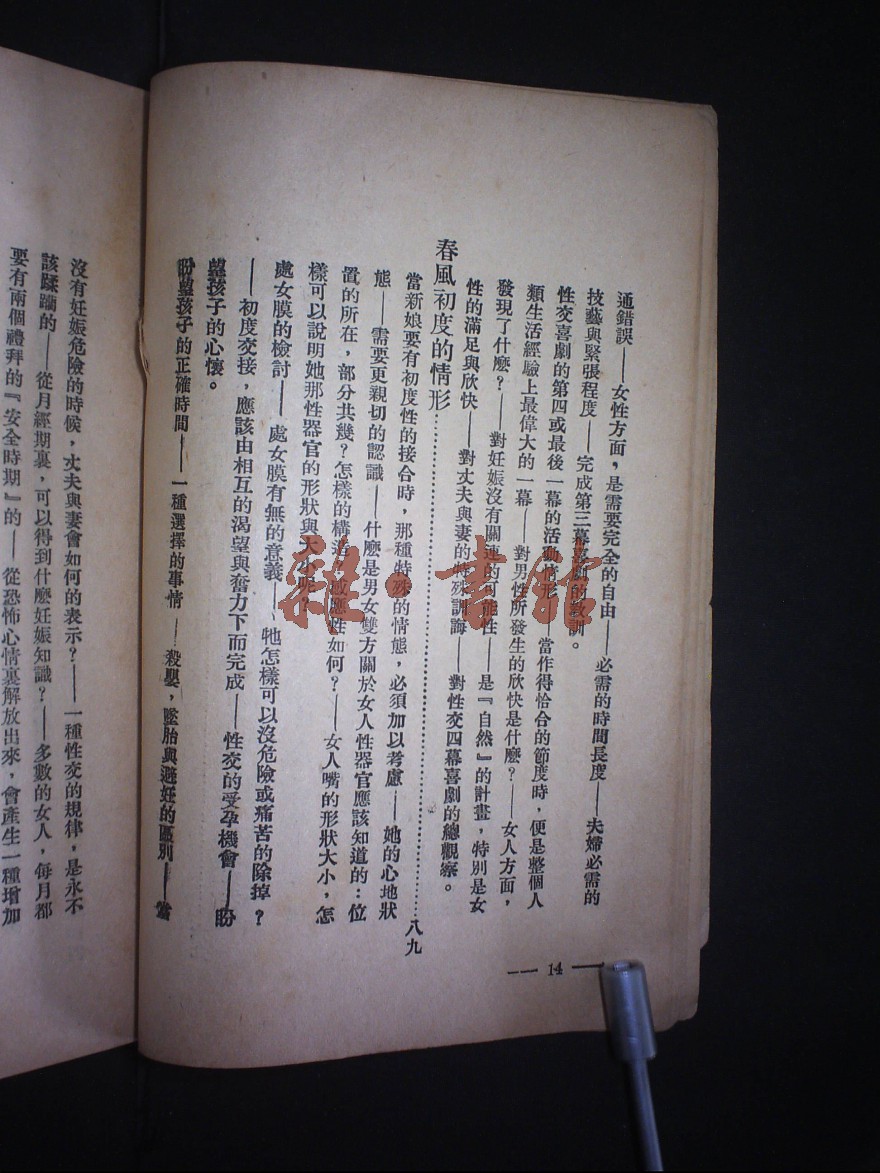 通錯誤——女性方面，是需要完全的自由——必需的時間長度——夫婦必需的
技藝與緊張程度——完成第三幕喜劇的教訓。
性交喜劇的第四或最後一幕的活動情形——當作得恰合的節度時，便是整個人
類生活經驗上最偉大的一幕——對男性所發生的欣快是什麼？——女人方面，
發現了什麼？——對妊娠沒有關連的可能性——是『自然』的計畫，特別是女
性的滿足與欣快——對丈夫與妻的特殊調誨——對性交四幕喜劇的總觀察。
春風初度的情形……八九
當新娘要有初度性的接合時，那種特殊的情態，必須加以考慮——她的心地狀
態——需要更親切的認識——什麼是男女雙方關於女人性器官應該知道的：位
置的所在，部分共幾？怎樣的構造？感應性如何？——女人嘴的形狀大小，怎
樣可以說明她那性器官的形狀與大小呢？
處女膜的檢討——處女膜有無的意義——牠怎樣可以沒危險或痛苦的除掉？
——初度交接，應該由相互的渴望與奮力下而完成——性交的受孕機會——盼
望孩子的心懷。
盼望孩子的正確時間——一種選擇的事情——殺嬰，墜胎與避妊的區別——當
— 14 —
沒有妊娠危險的時候，丈夫與妻會如何的表示？——一種性交的規律，是永不
該蹂躪的——從月經期裏，可以得到什麼妊娠知識？——多數的女人，每月都
要有兩個禮拜的『安全時期』的——從恐怖心情裏解放出來，會產生一種增加
雜·書館